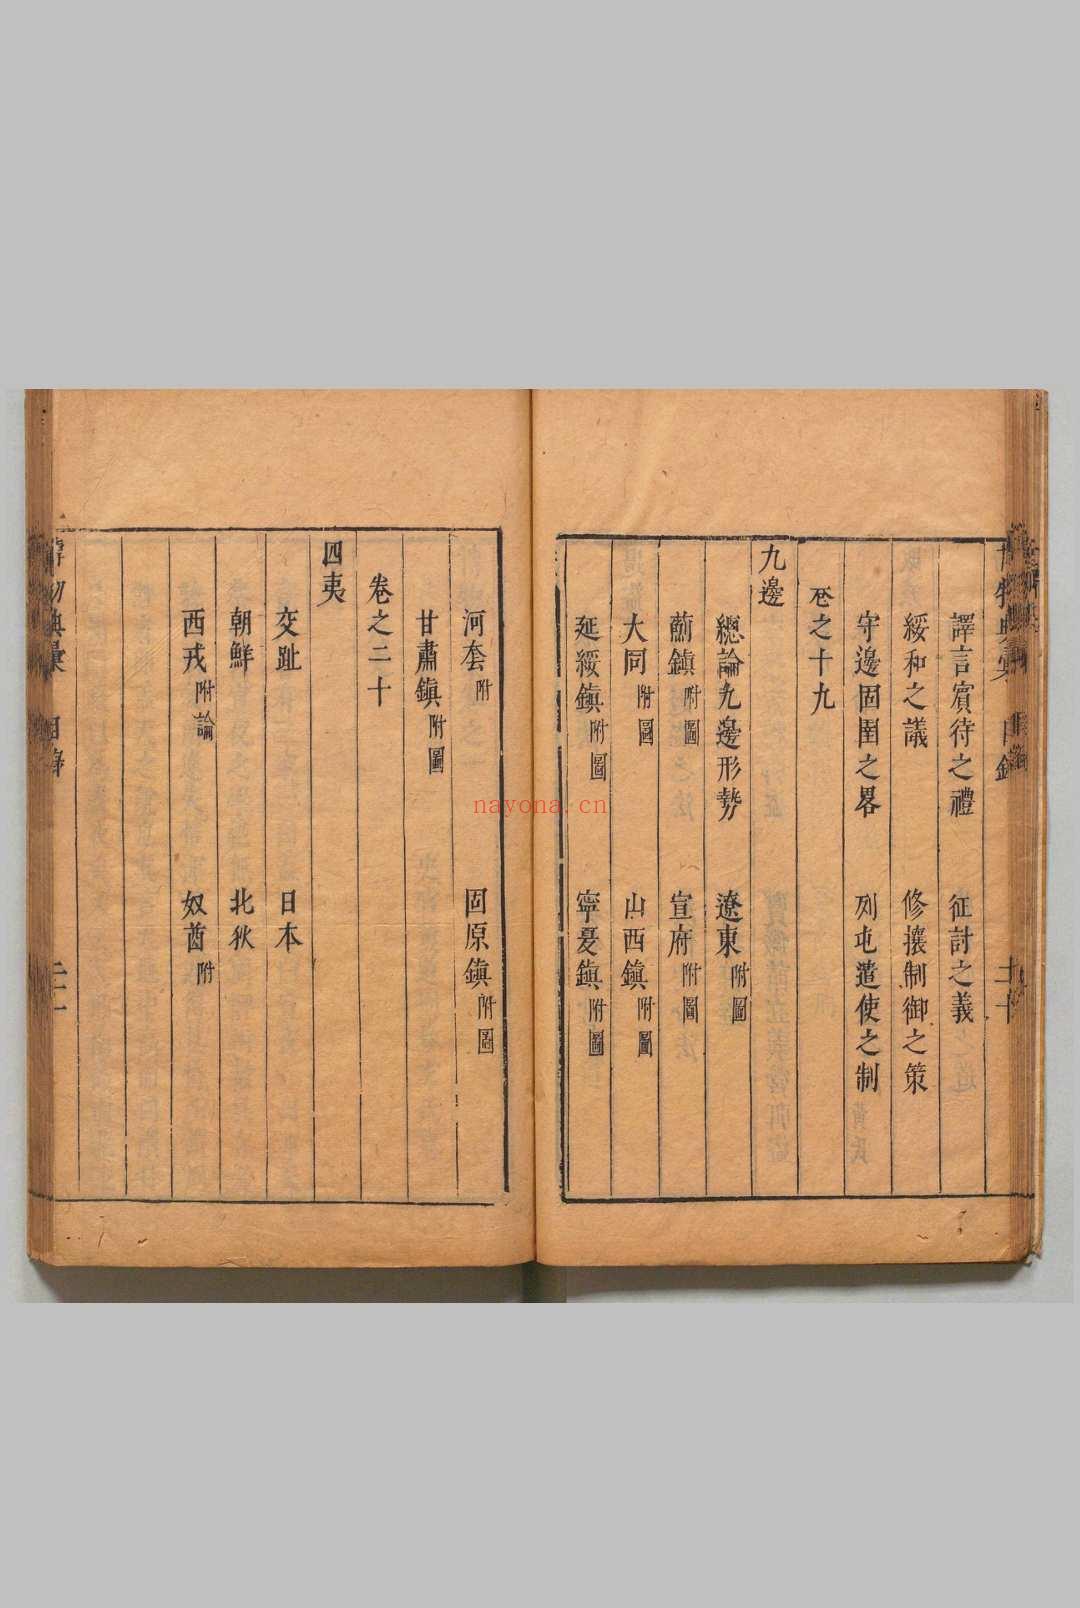 譯言賓待之禮　征討之義
綏和之議　修攘制御之策
守邊固圉之畧　列屯遣使之制
卷之十九
九邊
總論九邊形勢　遼東附圖
薊鎮附圖　宣府附圖
大同附圖　山西鎮附圖
延綏鎮附圖　寧夏鎮附圖
河套附　固原鎮附圖
甘肅鎮附圖
卷之二十
四夷
交趾　日本
朝鮮　北狄
西戎附論　奴酋附
nayona.cn